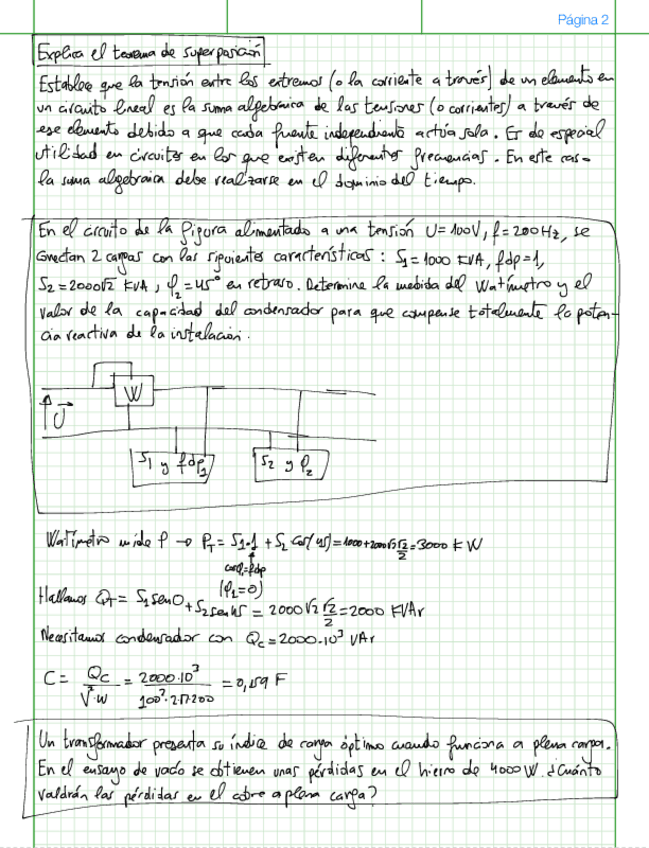 Página 2
Explica el teorema de superposición
Establece que la tensión entre los extremos (o la corriente a través) de un elemento en
un circuito lineal es la suma algebraica de las tensiones (o corrientes) a través de
ese elemento debido a que cada fuente independiente actúa sola. Es de especial
utilidad en circuitos en los que existen diferentes frecuencias. En este caso
la suma algebraica debe realizarse en el dominio del tiempo.
En el circuito de la figura alimentado a una tensión U=100V, f=200Hz, se
conectan 2 cargas con las siguientes características: S₁=1000 KVA, fdp=1,
S₂=2000√2 KVA, φ₂=45° en retraso. Determine la medida del Watímetro y el
valor de la capacidad del condensador para que compense totalmente la poten-
cia reactiva de la instalación.
W
U
S₁ y fdp₁
S₂ y φ₂
Watímetro mide P → P_T = S₁·1 + S₂ cos(45)=1000+2000√2 √2/2=3000 KW
cosφ₁=fdp
(φ₁=0)
Hallamos Q_T= S₁sen0 + S₂sen45 = 2000√2 √2/2=2000 KVAr
Necesitamos condensador con Qc=2000·10³ VAr
C= Qc/V²·w = 2000·10³/100²·2π·200 = 0,159 F
Un transformador presenta su índice de carga óptimo cuando funciona a plena carga.
En el ensayo de vacío se obtienen unas pérdidas en el hierro de 4000W. ¿Cuánto
valdrán las pérdidas en el cobre a plena carga?